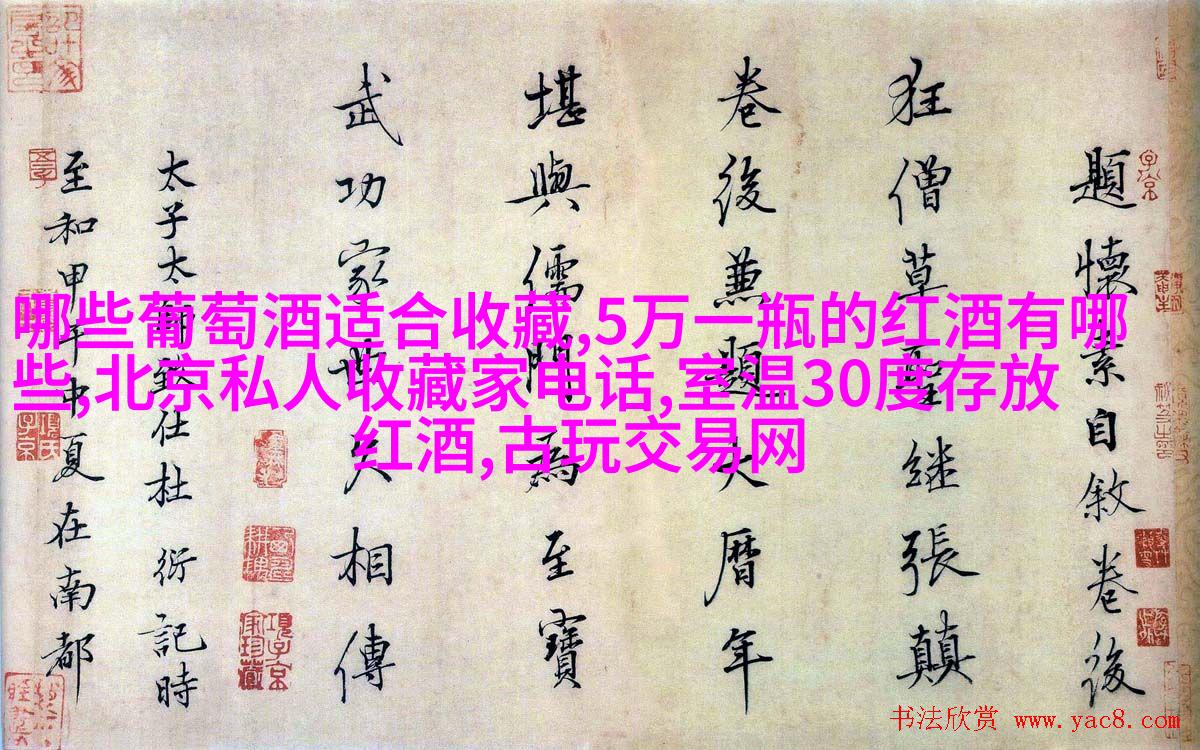 題懷素自敘卷後
狂僧草聖継張顛
卷後兼題大曆年
堪與儒門為至寶
武功家世久相傳
太子太師致仕杜 衍記時
至和甲午中夏在南都
項子京
家珍藏
哪些葡萄酒适合收藏,5万一瓶的红酒有哪
些,北京私人收藏家电话,室温30度存放
红酒,古玩交易网
书法欣赏 www.yac8.com